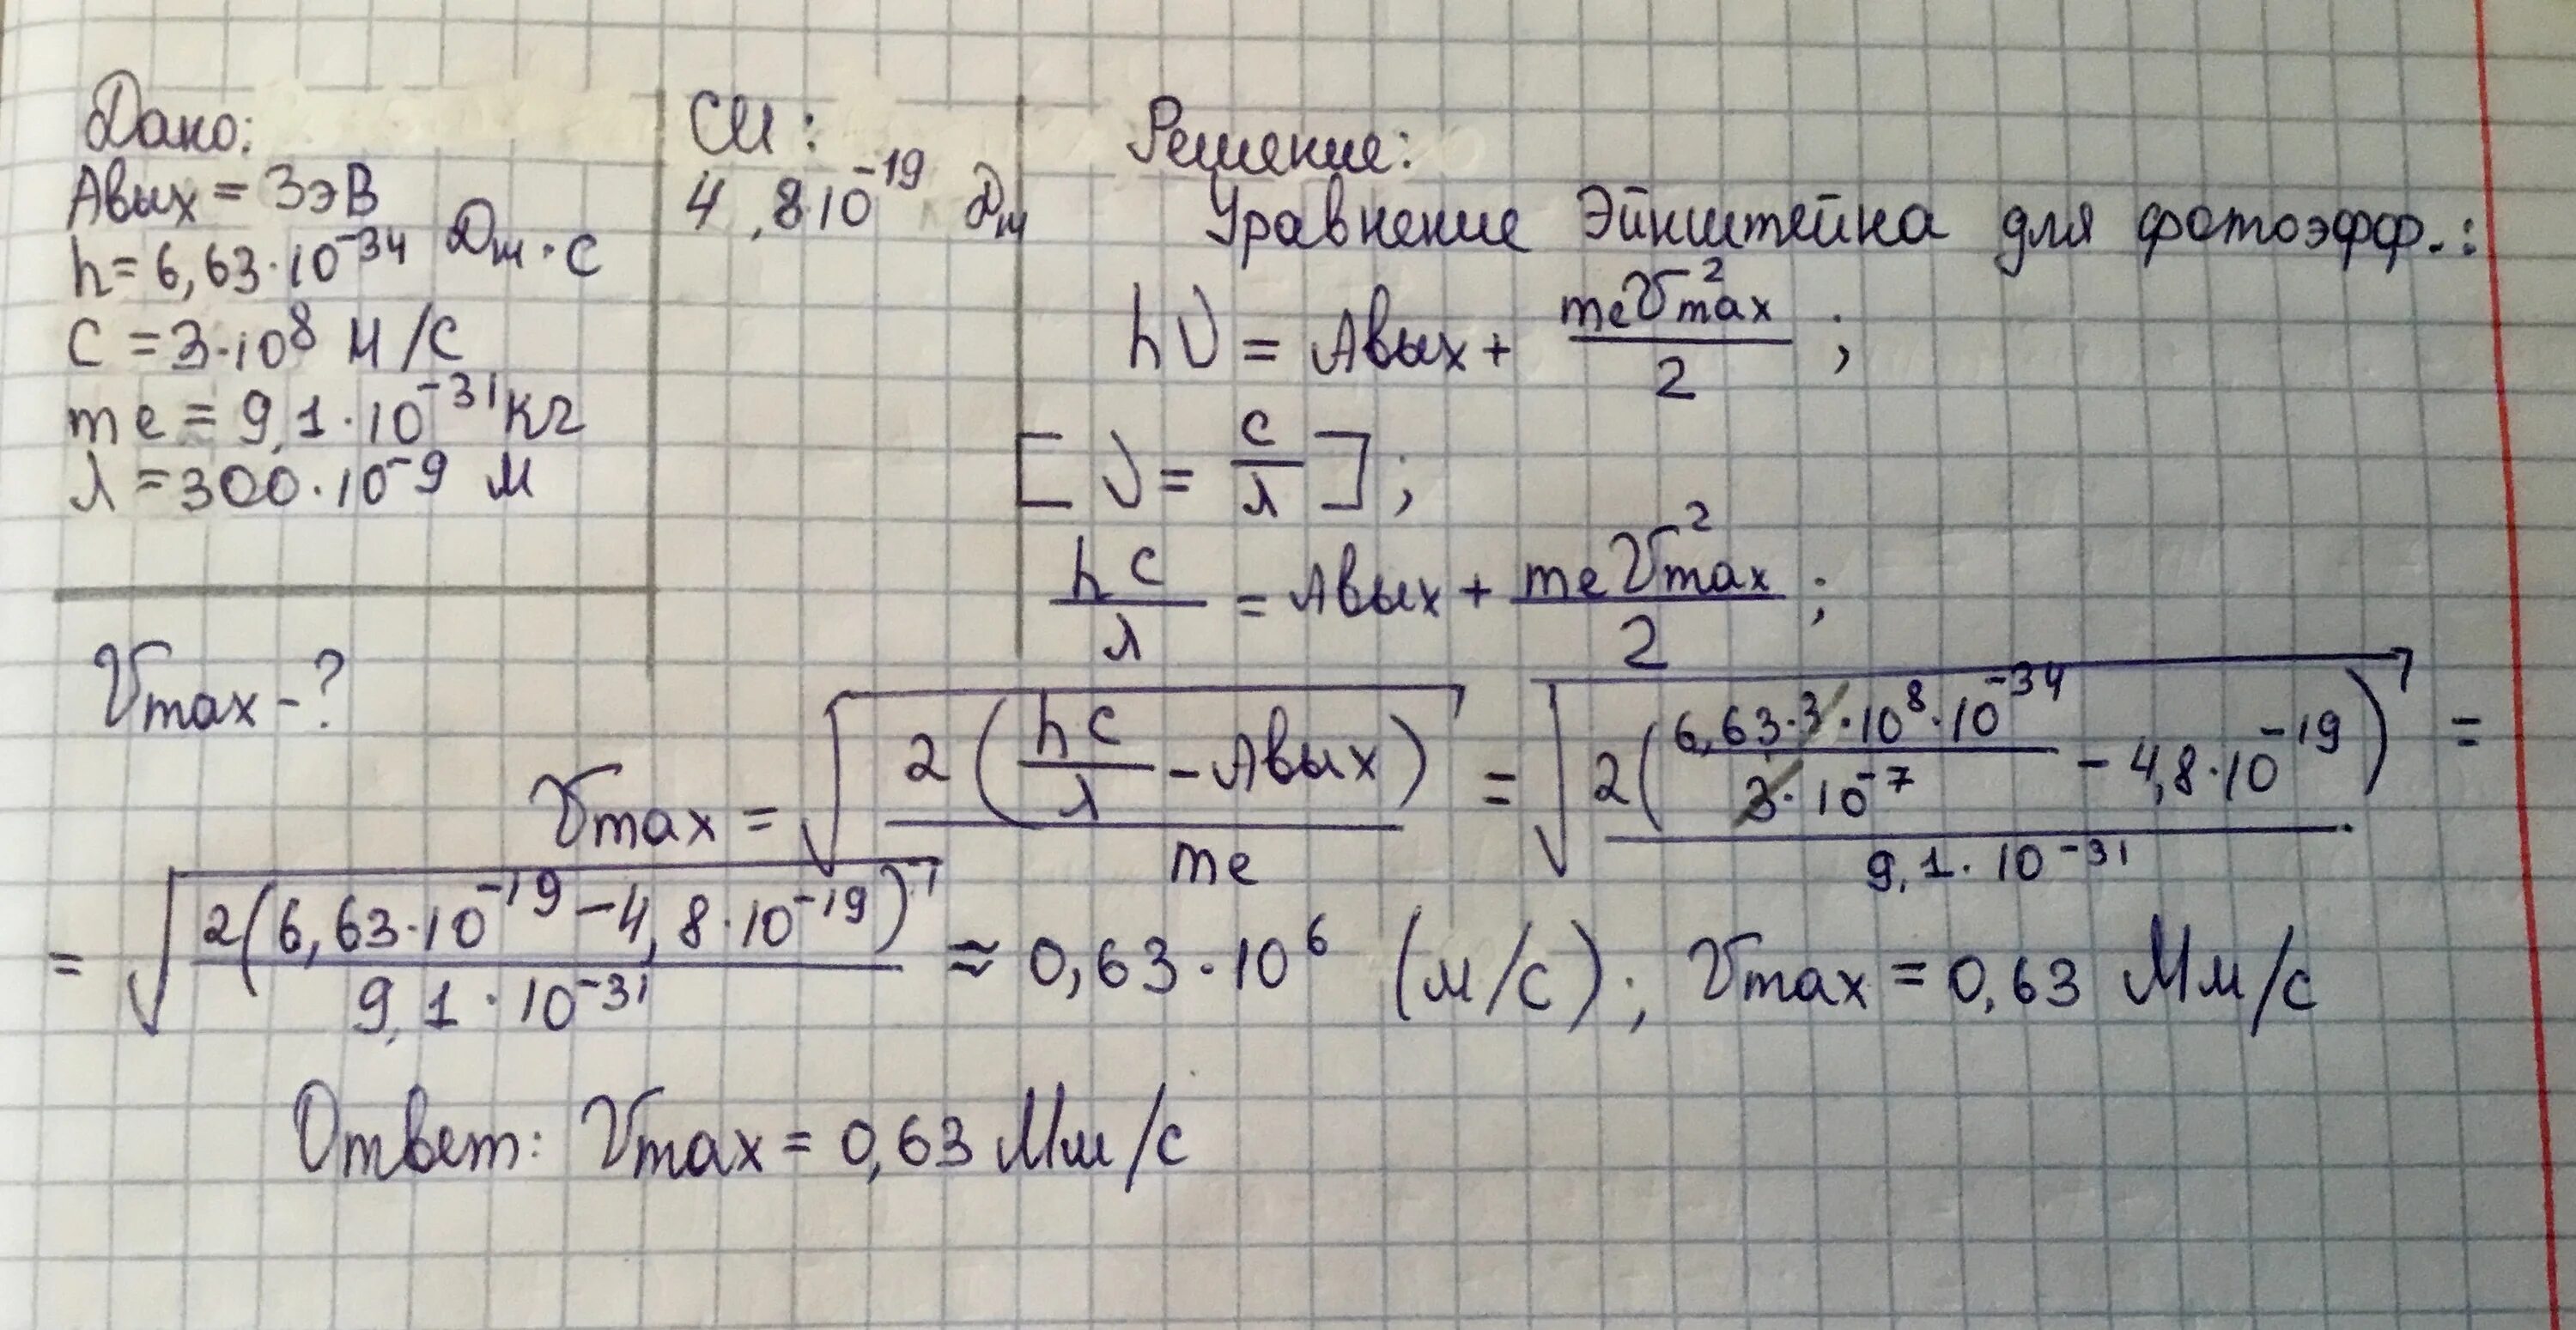 Дано:
Aвых = 3эВ
h = 6,63·10⁻³⁴ Дж·с
c = 3·10⁸ м/с
me = 9,1·10⁻³¹ кг
λ = 300·10⁻⁹ м
Vmax - ?
СИ:
4,8·10⁻¹⁹ Дж
Решение:
Уравнение Эйнштейна для фотоэфф.:
hν = Aвых + meVmax²/2 ;
[ν = c/λ] ;
hc/λ = Aвых + meVmax²/2 ;
Vmax = √(2(hc/λ - Aвых)/me) = √(2(6,63·3·10⁸·10⁻³⁴/3·10⁻⁷ - 4,8·10⁻¹⁹)/9,1·10⁻³¹) =
= √(2(6,63·10⁻¹⁹ - 4,8·10⁻¹⁹)/9,1·10⁻³¹) ≈ 0,63·10⁶ (м/с); Vmax = 0,63 Мм/с
Ответ: Vmax = 0,63 Мм/с